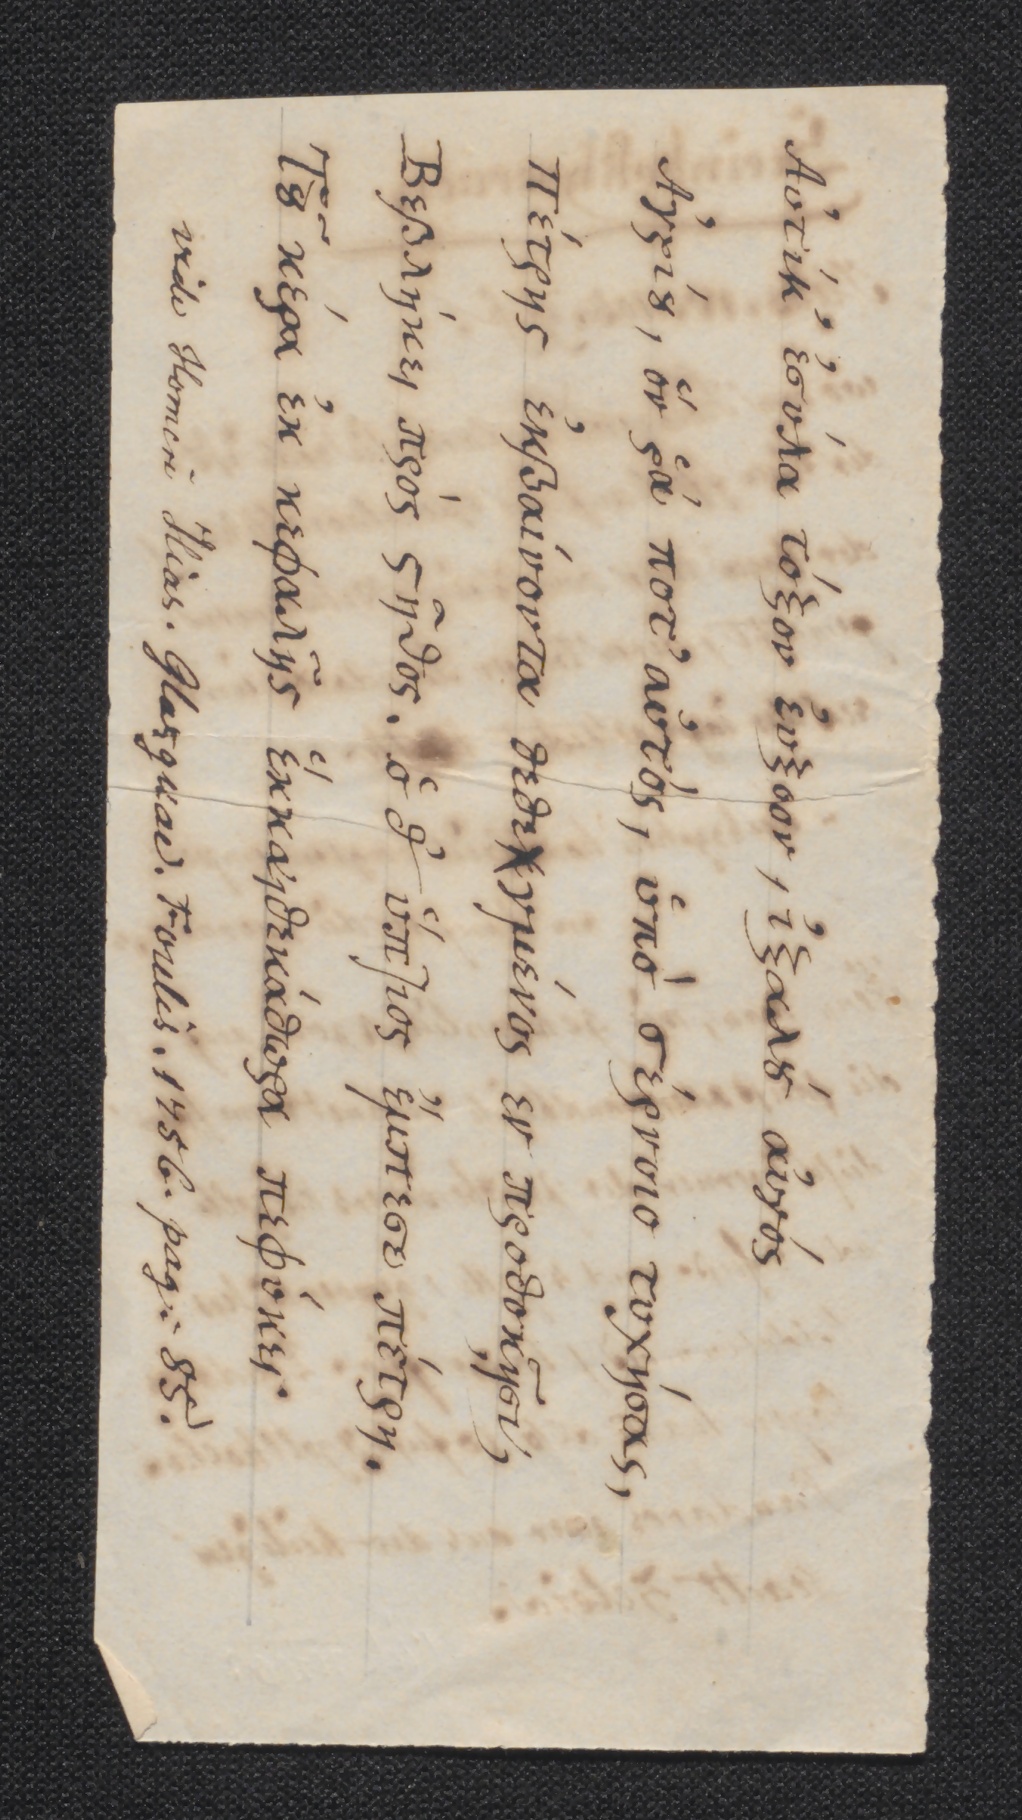 Αὐτίκ' ἐσύλα τόξον ἐυξοον, ἰξαλȣ́ ἀιγός
Ἀγρίȣ, ὅν ῥά ποτ' ἀυτὸς, ὑπὸ στέρνοιο τυχήσας,
Πέτρης ἐκβαίνοντα δεδεγμένος ἐν προδοκῇσι,
Βεβλήκει πρὸς ϛῆθος. ὁ δ' ὕπ]ιος ἔμπεσε πέτρῃ.
Τȣ̃ κέρα ἐκ κεφαλῆς ἑκκαιδεκάδωρα πεφύκει.
vide Homeri Ilias. Glasguae. Foulis. 1756. pag: 85.